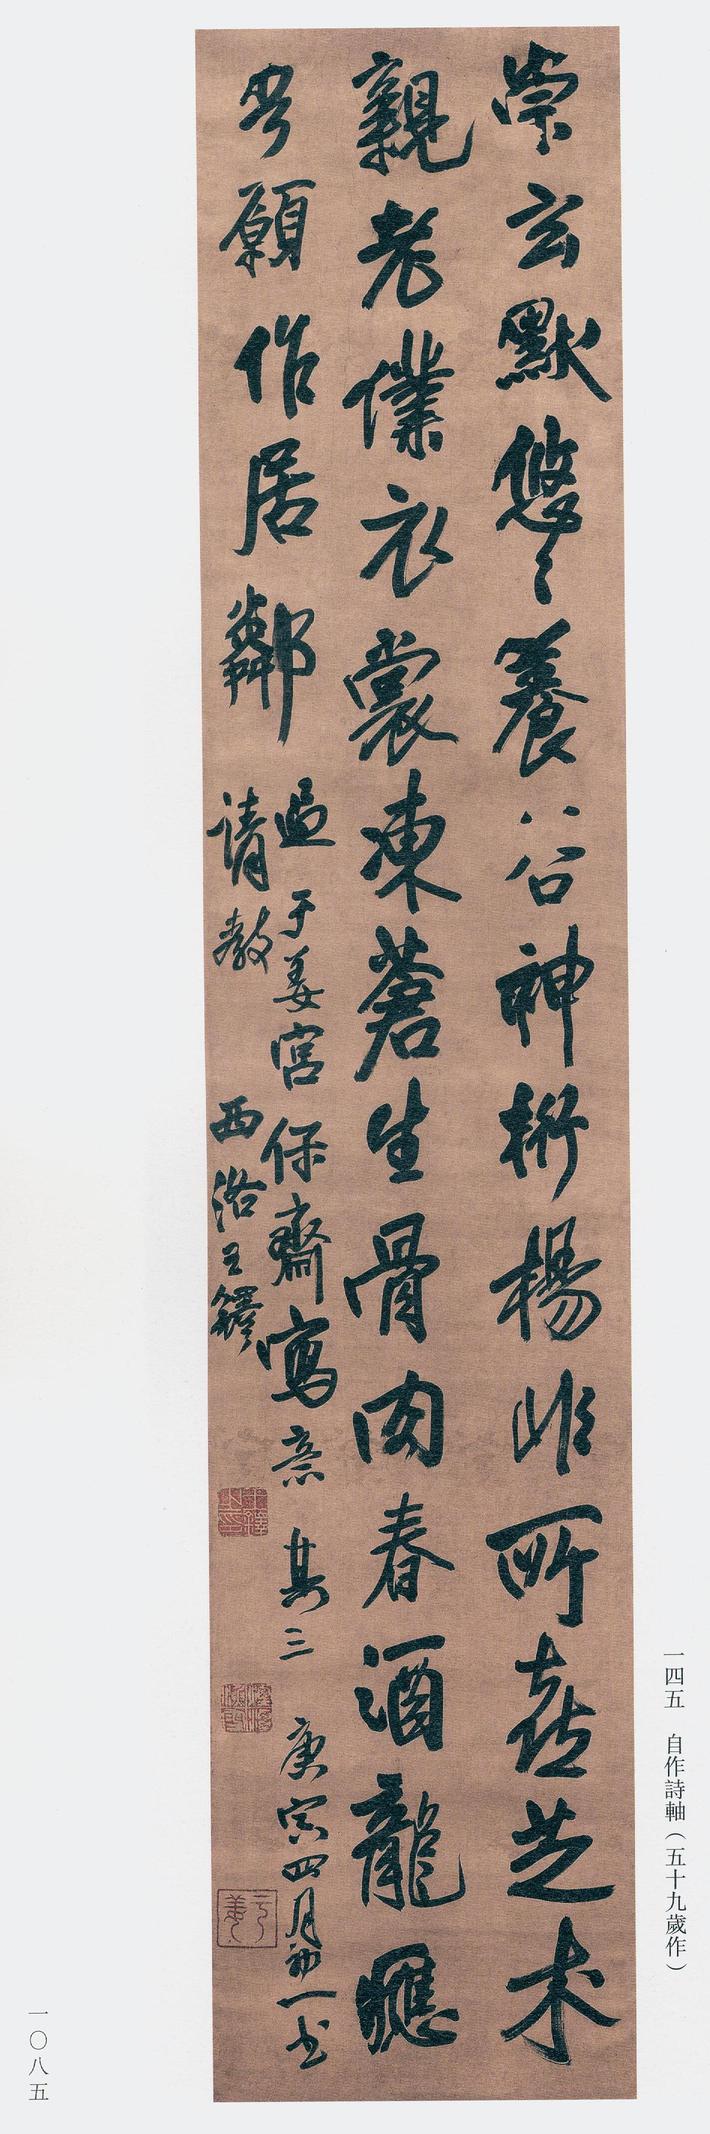 崇玄默悠々養谷神桁楊非所喜芝朮
親老僕衣裳凍蒼生骨肉春酒龍應
願作居鄰
過于姜宮保齋寫意 其三 庚寅四月初一書
請教 西洛王鐸
一四五 自作詩軸（五十九歲作）
一〇八五